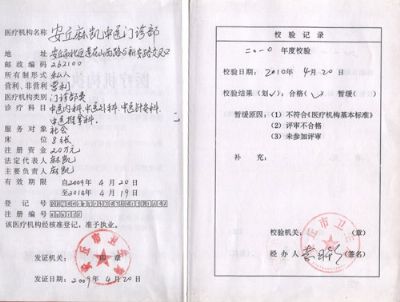 医疗机构名称 安丘麻凯中医门诊部
地 址
邮政编码 262100
所有制形式 私人
营利、非营利 营利
医疗机构类别 门诊部类
诊疗科目 中医内科、中医外科、中医针灸科、
中医推拿科.
服务对象 社会
床 8张
注册资金 20万元
法定代表人 麻凯
主要负责人 麻凯
有效期限 自2009年4月20日
至2014年4月19日
登记号
注册编号
该医疗机构经核准登记,准予执业。
发证机关: 章
发证日期:2009年4月20日
安丘市卫生局
校验记录
二〇一〇年度校验
校验日期:2010年4月20日
校验结果(划√):合格(√) 暂缓( )
暂缓原因:(1)不符合《医疗机构基本标准》
(2)评审不合格
(3)未参加评审
补 充:
校验机关: (章)
经办人 (签名)